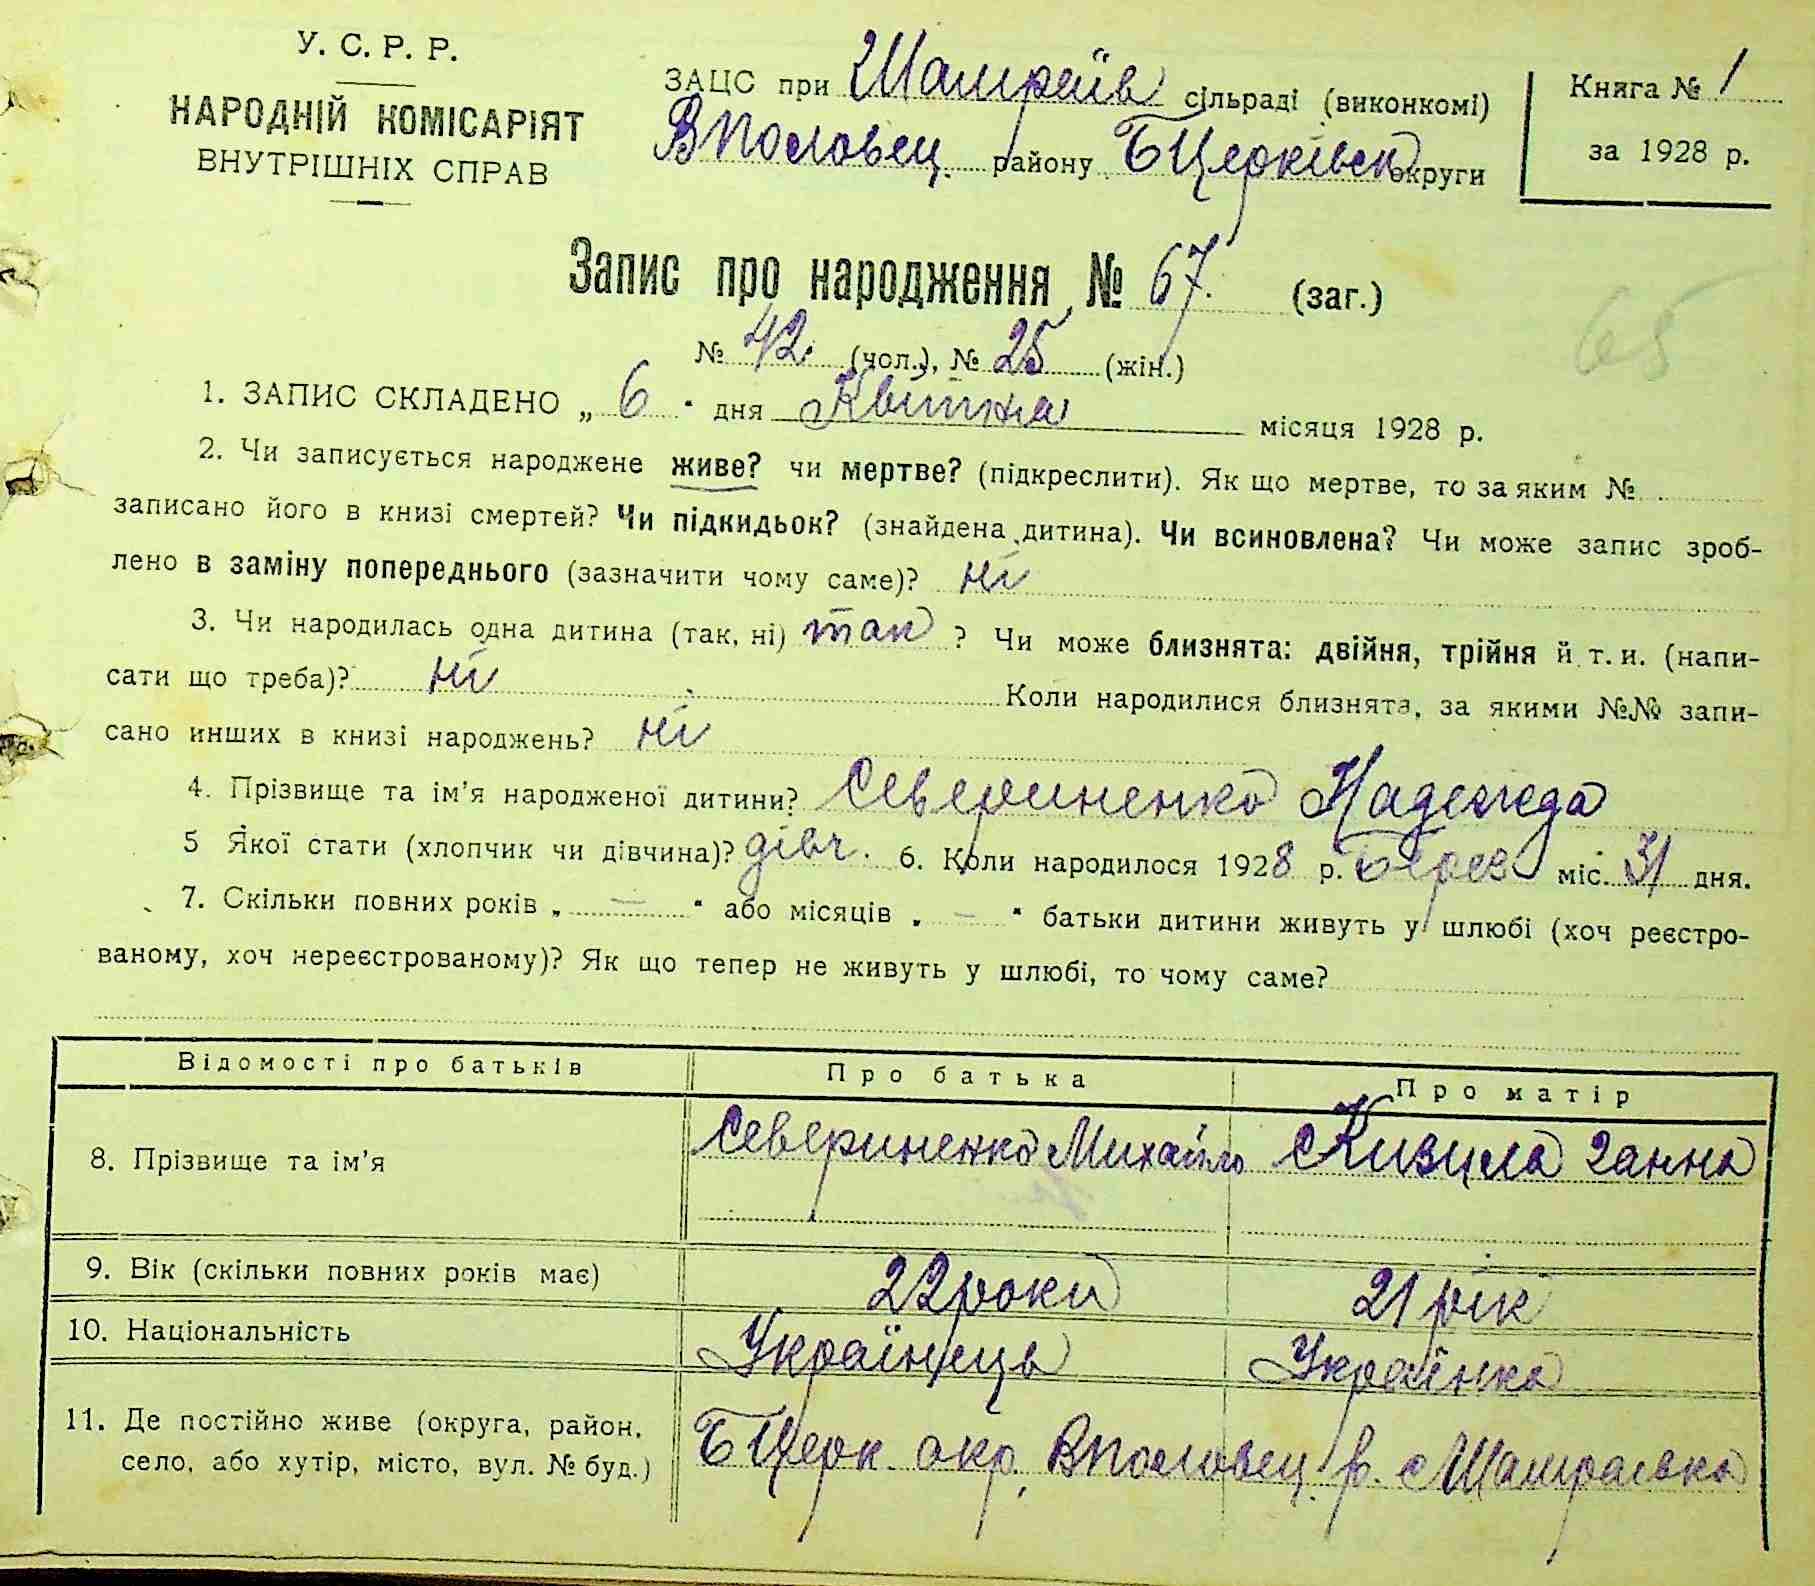 У. С. Р. Р.
НАРОДНІЙ КОМІСАРІЯТ
ВНУТРІШНІХ СПРАВ
ЗАЦС при Шамраїв сільраді (виконкомі)
ВПоловец. району БЦерківськ округи
Книга № 1
за 1928 р.
Запис про народження № 67. (заг.)
№ 42. (чол.), № 25 (жін.)
65
1. ЗАПИС СКЛАДЕНО „ 6 " дня Квітня місяця 1928 р.
2. Чи записується народжене живе? чи мертве? (підкреслити). Як що мертве, то за яким №
записано його в книзі смертей? Чи підкидьок? (знайдена дитина). Чи всиновлена? Чи може запис зроб-
лено в заміну попереднього (зазначити чому саме)? ні
3. Чи народилась одна дитина (так, ні) так ? Чи може близнята: двійня, трійня й т. и. (напи-
сати що треба)? ні Коли народилися близнята, за якими №№ запи-
сано инших в книзі народжень? ні
4. Прізвище та ім'я народженої дитини? Севериненко Надежда
5 Якої стати (хлопчик чи дівчина)? дівч. 6. Коли народилося 1928 р. Берез міс. 31 дня.
7. Скільки повних років „ — " або місяців „ — " батьки дитини живуть у шлюбі (хоч реєстро-
ваному, хоч нереєстрованому)? Як що тепер не живуть у шлюбі, то чому саме?
Відомості про батьків Про батька Про матір
8. Прізвище та ім'я Севериненко Михайло Ганна
9. Вік (скільки повних років має) 22 роки 21 рік
10. Національність Українець Українка
11. Де постійно живе (округа, район,
село, або хутір, місто, вул. № буд.) БЦерк. окр. ВПоловец. р. с Шамраівка